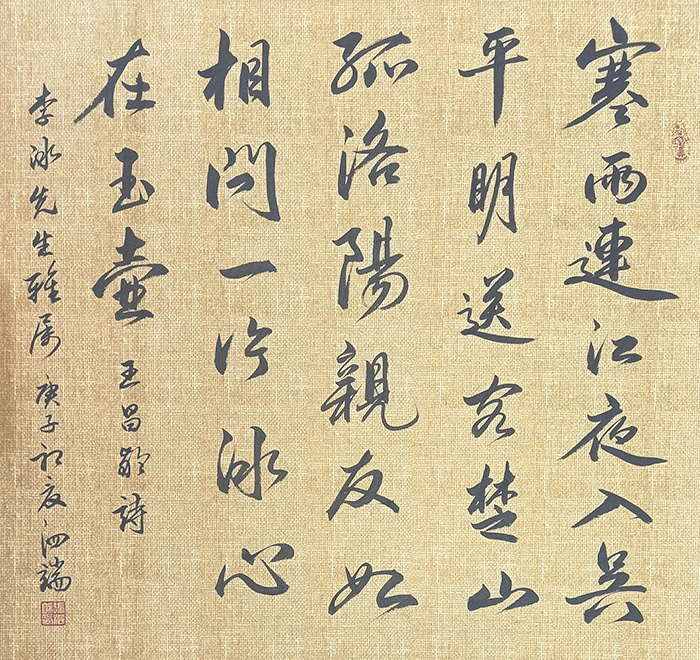 寒雨連江夜入吳
平明送客楚山
孤洛陽親友如
相問一片冰心
在玉壺 王昌齡詩
李冰先生雅屬 庚子初夏泗端